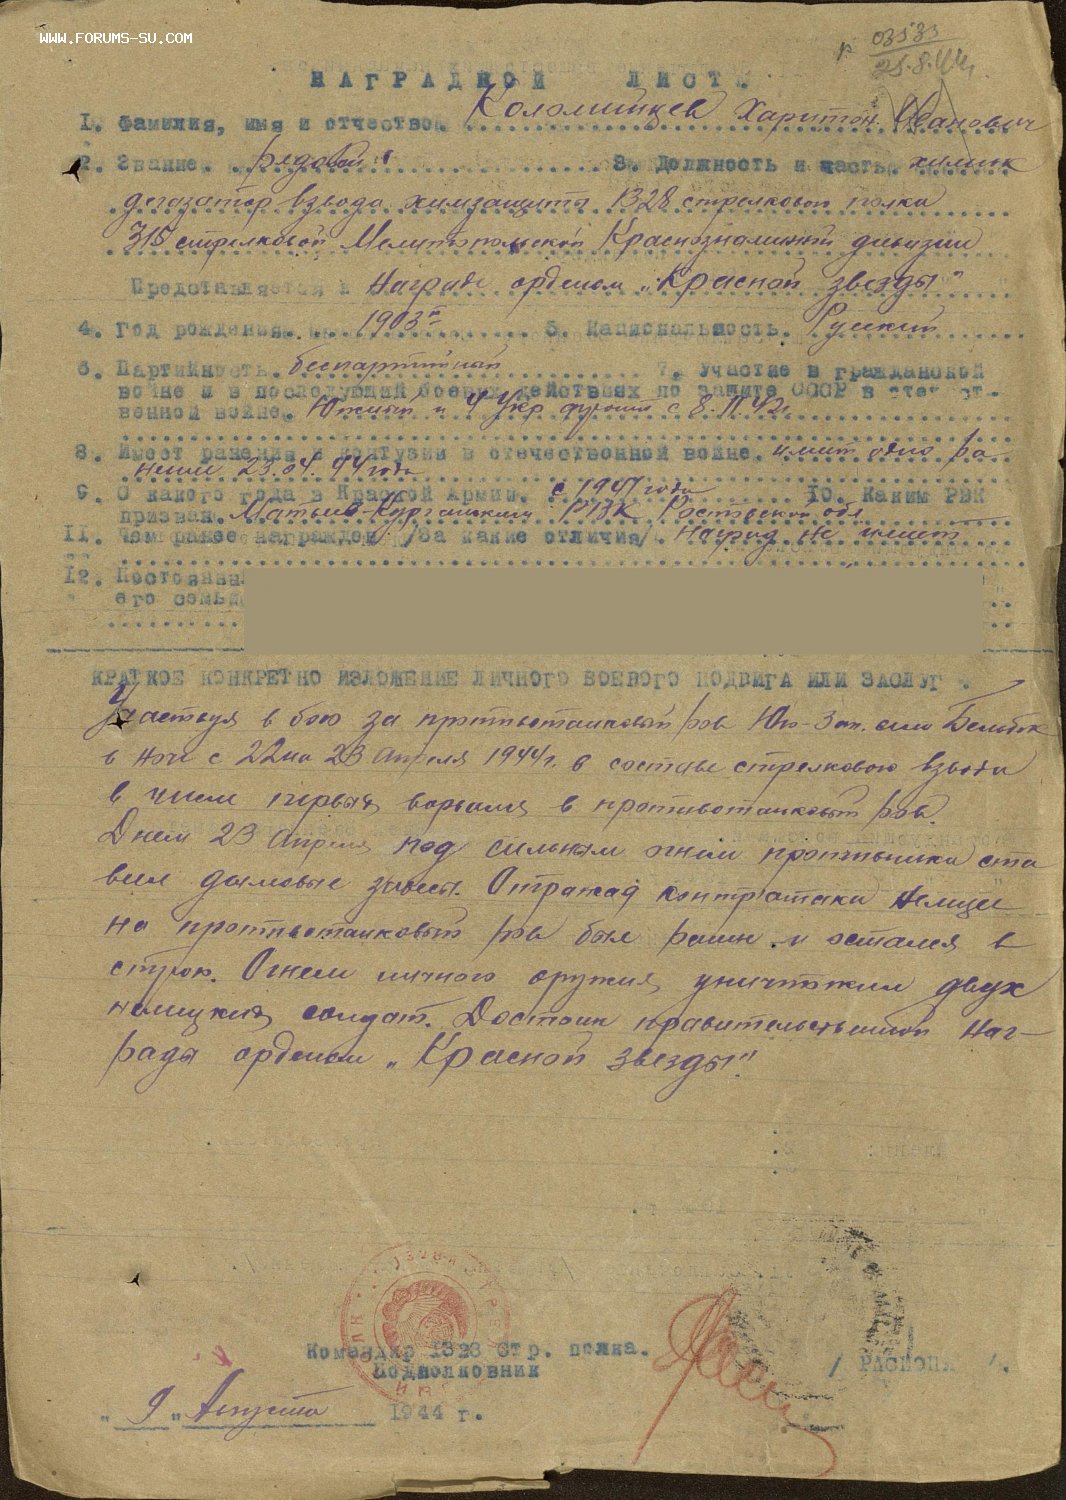 WWW.FORUMS-SU.COM
03533
25.8.44
НАГРАДНОЙ ЛИСТ.
1. Фамилия, имя и отчество. Коломийцев Харитон Иванович
2. Звание. рядовой 3. Должность и часть. химик
дегазатор взвода химзащиты 1328 стрелкового полка
315 стрелковой Мелитопольской Краснознаменной дивизии
Представляется к Награде орденом „Красной звезды"
4. Год рождения. 1903 г 5. Национальность. Русский
6. Партийность. беспартийный 7. Участие в гражданской
войне и в последующих боевых действиях по защите СССР в отечест-
венной войне. Южный и 4 Укр. фронт с 8. 11. 42 г.
8. Имеет ранения и контузии в отечественной войне. имеет одно ра
нение 23.04.44 года
9. С какого года в Красной Армии. с 1941 года 10. Каким РВК
призван. Матвеево-Курганским РВК Ростовской обл.
11. Чем ранее награжден /За какие отличия/. Наград не имеет
12. Постоянный
его семьи
КРАТКОЕ КОНКРЕТНО ИЗЛОЖЕНИЕ ЛИЧНОГО БОЕВОГО ПОДВИГА ИЛИ ЗАСЛУГ.
Участвуя в бою за противотанковый ров Юго-Зап. село Бельбек
в ночь с 22 на 23 апреля 1944 г. в составе стрелкового взвода
в числе первых ворвался в противотанковый ров.
Днем 23 апреля под сильным огнем противника ста
вил дымовые завесы. Отражая контратаки немцев
на противотанковый ров был ранен и остался в
строю. Огнем личного оружия уничтожил двух
немецких солдат. Достоин правительственной наг-
рады орденом „Красной звезды".
Командир 1328 Стр. полка.
Подполковник
„ 9 „ Августа 1944 г.